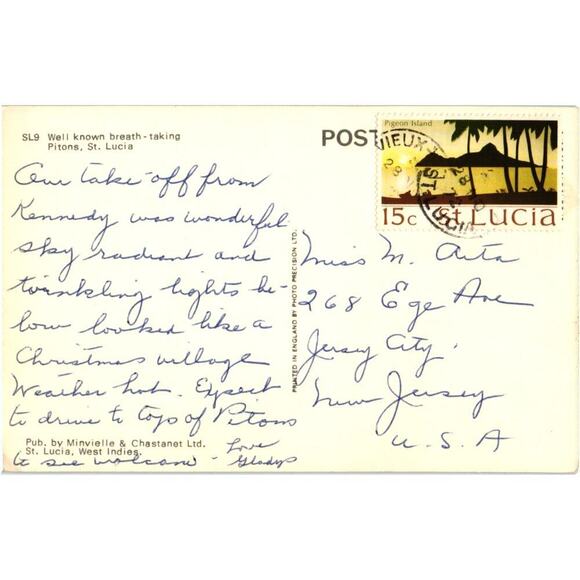 SL9 Well known breath-taking
Pitons, St. Lucia
POST
Pigeon Island
15c St Lucia
VIEUX
ST. LUCIA
Our take-off from
Kennedy was wonderful
sky radiant and
twinkling lights be-
low looked like a
Christmas village
Weather hot. Expect
to drive to top of Pitons
to see volcano - Love
Gladys
Pub. by Minvielle & Chastanet Ltd.
St. Lucia, West Indies.
PRINTED IN ENGLAND BY PHOTO PRECISION LTD.
Miss M. Arta
268 Ege Ave
Jersey City,
New Jersey
U.S.A